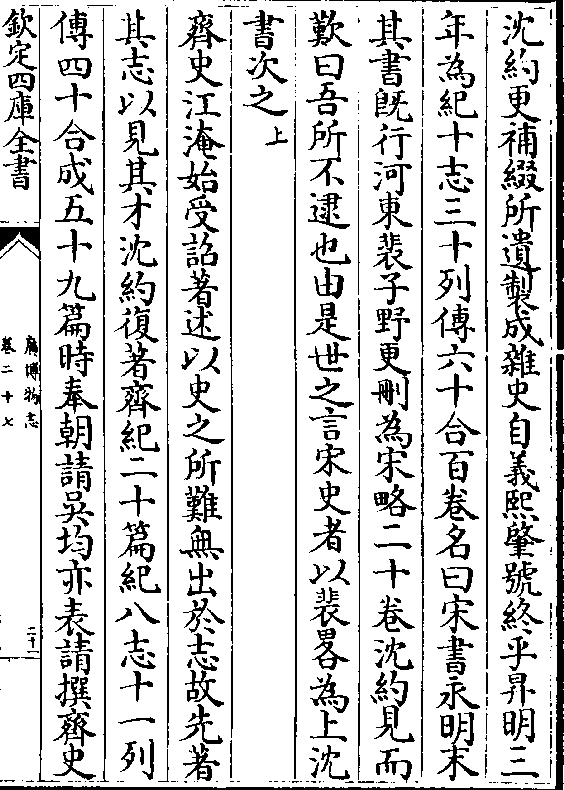 沈約更補綴所遺製成雜史自義熙肇號終乎昇明三
年為紀十志三十列傳六十合百卷名曰宋書永明末
其書旣行河東裴子野更刪為宋略二十卷沈約見而
歎曰吾所不逮也由是世之言宋史者以裴畧為上沈
書次之上
齊史江淹始受詔著述以史之所難無出於志故先著
其志以見其才沈約復著齊紀二十篇紀八志十一列
傳四十合成五十九篇時奉朝請吳均亦表請撰齊史
欽定四庫全書
廣博物志
卷二十七
二十